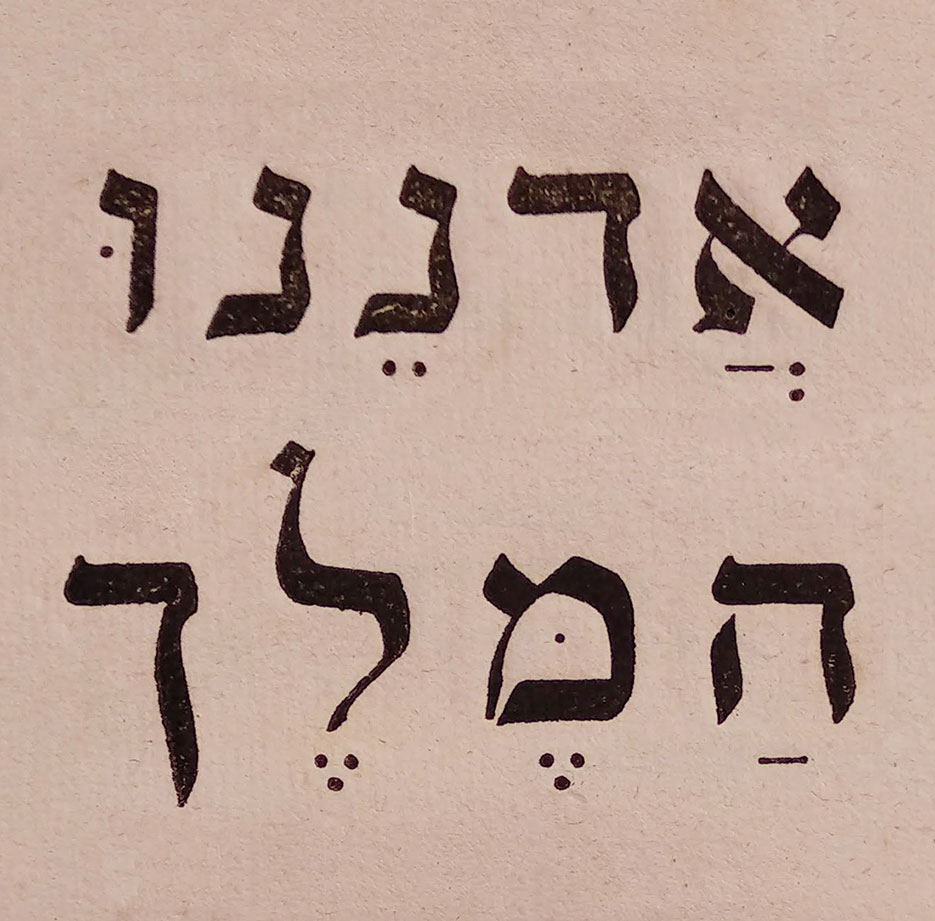 אֲדנֵנוּ
הַמֶּלֶך